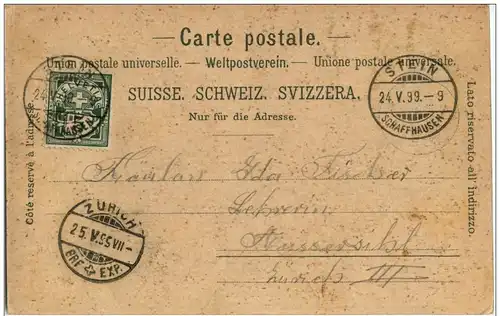 — Carte postale. —
Union postale universelle. — Weltpostverein. — Unione postale universale.
SUISSE. SCHWEIZ. SVIZZERA.
Nur für die Adresse.
Côté réservé à l'adresse.
Lato riservato all' indirizzo.
STEIN
24.V.99.-9
SCHAFFHAUSEN
Ida
Lehrerin
Aussersihl
Zürich III
ZÜRICH
25.V.99.VII-
BRF. EXP.